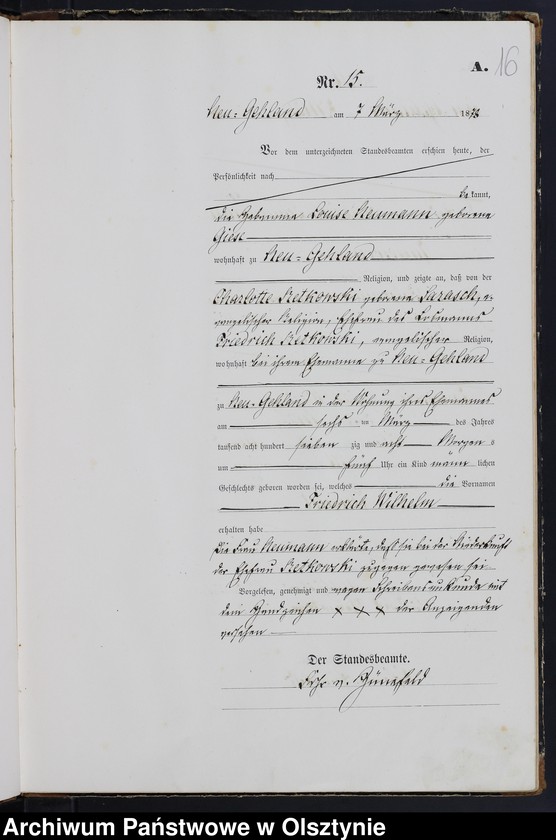 A. 16
Nr. 15.
Neu-Gehland am 7 März 1878
Vor dem unterzeichneten Standesbeamten erschien heute, der
Persönlichkeit nach
bekannt,
die Hebamme Louise Neumann geborene
Giese
wohnhaft zu Neu-Gehland
Religion, und zeigte an, daß von der
Charlotte Retkowski geborene Sarasch, e-
vangelischer Religion, Ehefrau des Losmanns
Friedrich Retkowski, evangelischer Religion,
wohnhaft bei ihrem Ehemanne zu Neu-Gehland
zu Neu-Gehland in der Wohnung ihres Ehemannes
am sechs ten März des Jahres
tausend acht hundert sieben zig und acht Morgens
um fünf Uhr ein Kind männlichen
Geschlechts geboren worden sei, welches die Vornamen
Friedrich Wilhelm
erhalten habe
die Frau Neumann erklärte, daß sie bei der Niederkunft
der Ehefrau Retkowski zugegen gewesen sei
Vorgelesen, genehmigt und wegen Schreibensunkunde mit
dem Handzeichen x x x der Anzeigenden
versehen
Der Standesbeamte.
v.
Archiwum Państwowe w Olsztynie